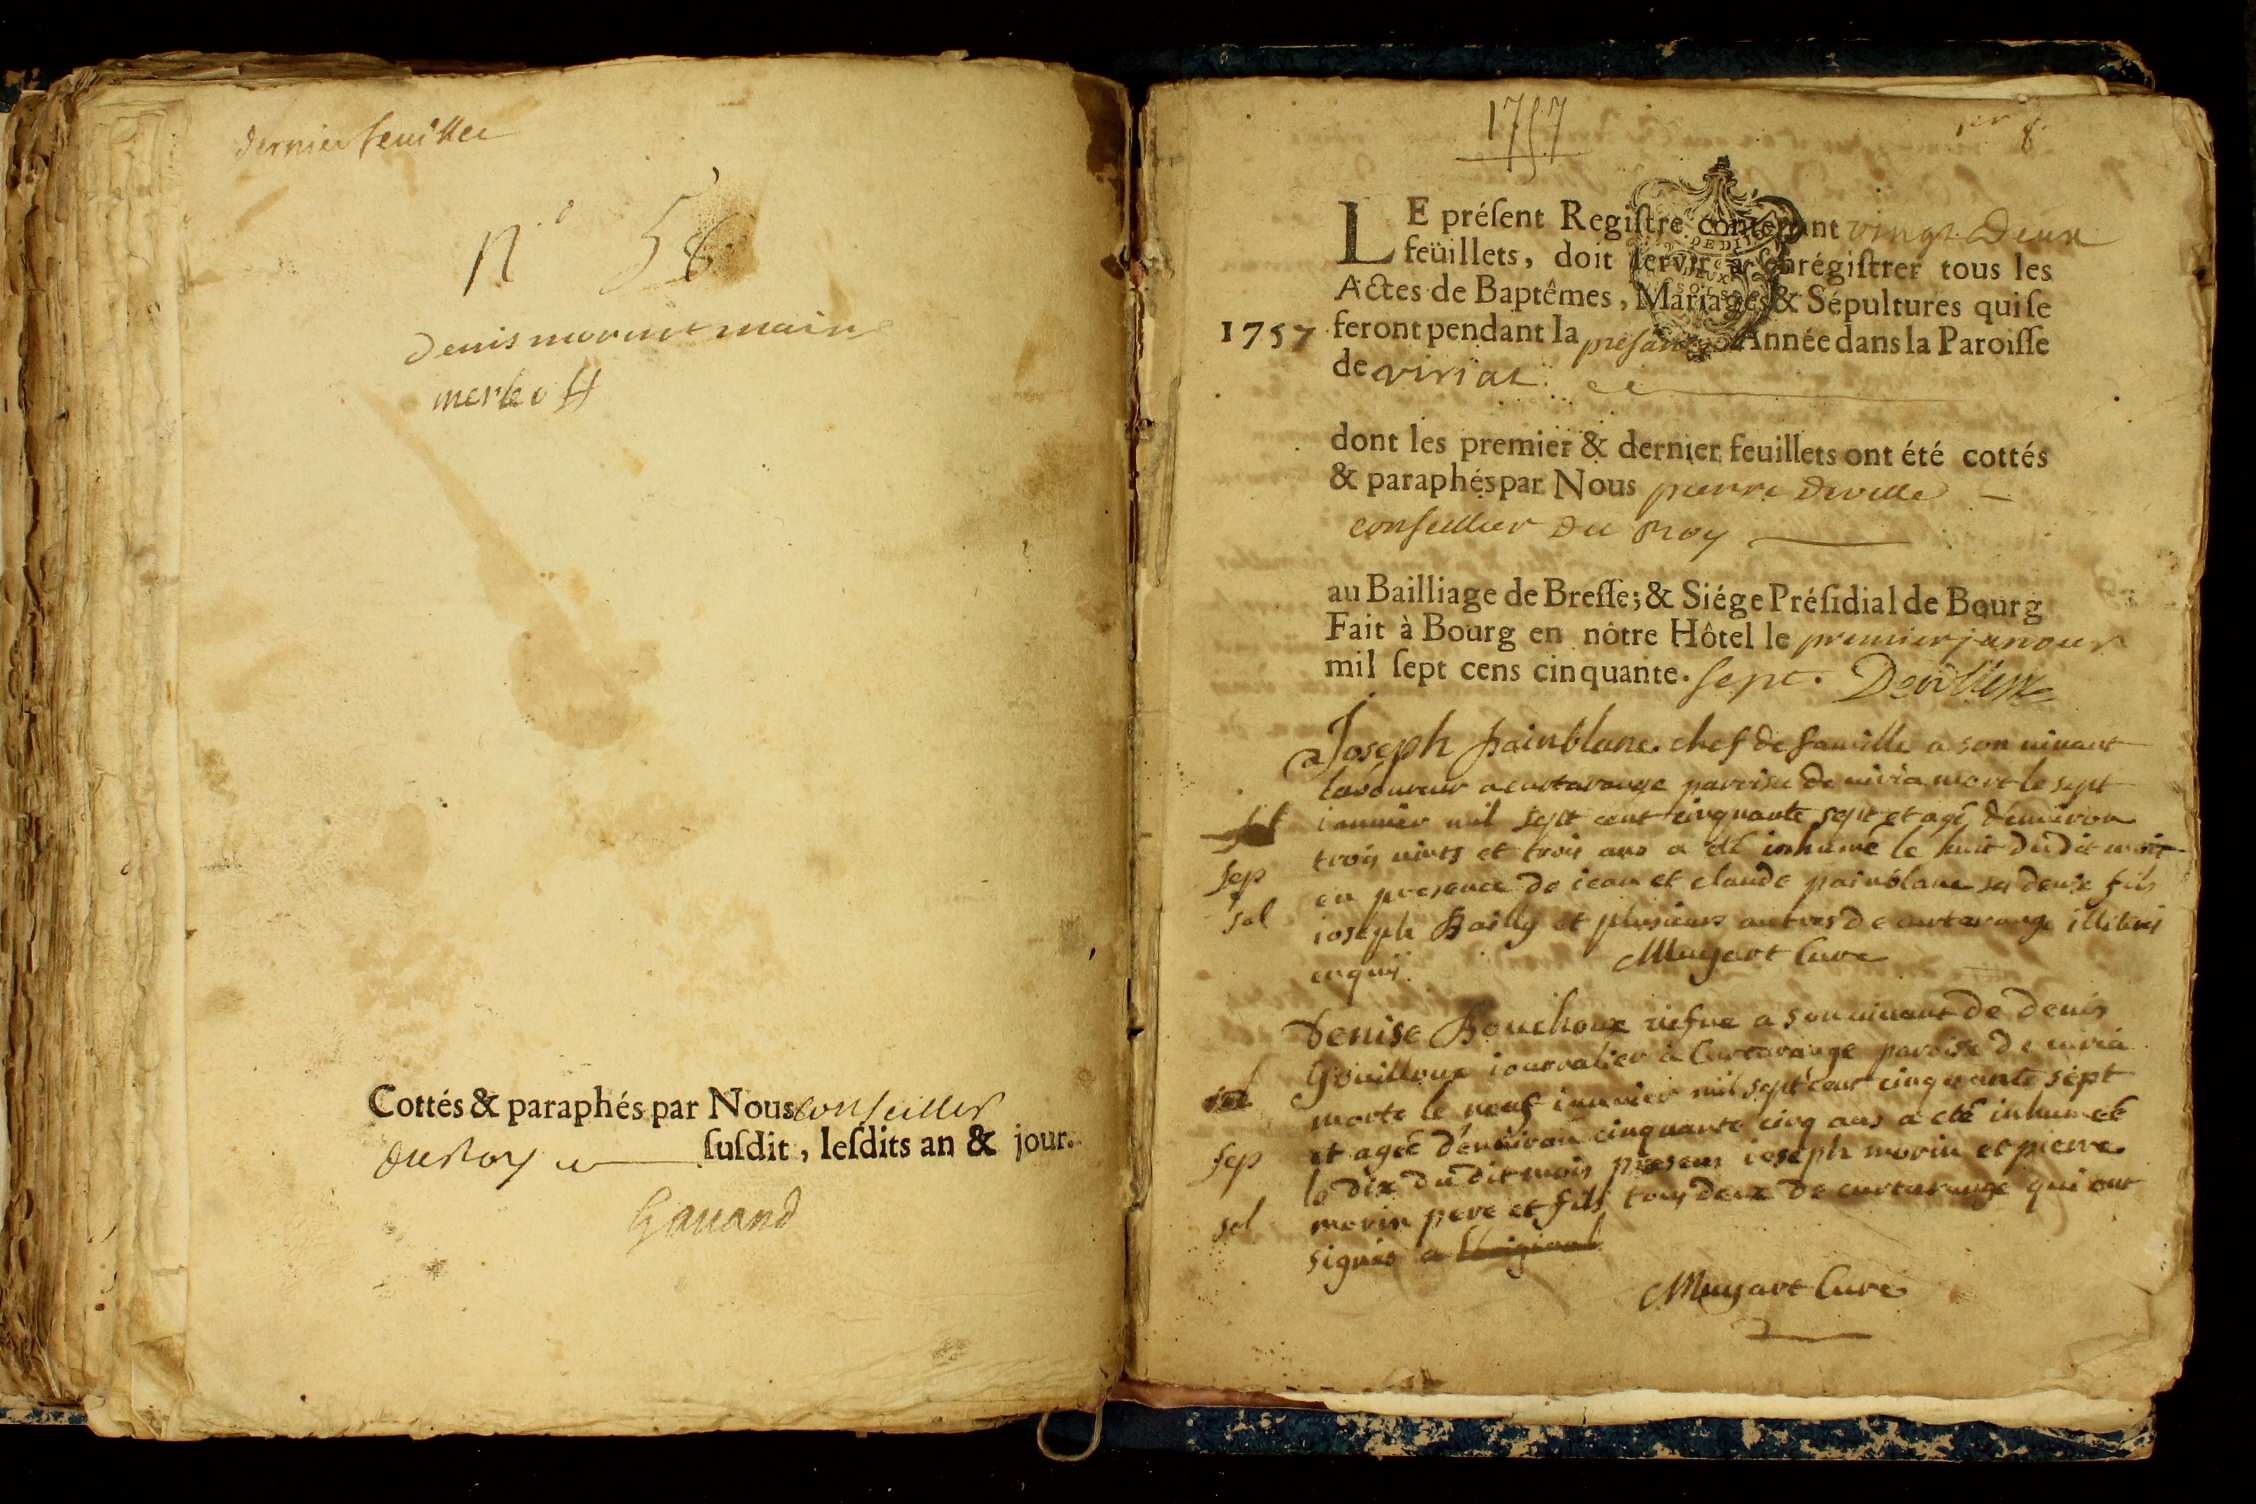 dernier feuillet
N° 58
denis morin et marin
Cottés & paraphés par Nous conseiller
du Roy ſuſdit, leſdits an & jour.
Gauand
1757
1er f.
LE préſent Regiſtre contenant vingt deux
feüillets, doit ſervir à enrégiſtrer tous les
Actes de Baptêmes, Mariages & Sépultures qui ſe
1757 feront pendant la présante Année dans la Paroiſſe
de viriat
dont les premier & dernier feuillets ont été cottés
& paraphés par Nous pierre Deville
conseillier du Roy
au Bailliage de Breſſe; & Siége Préſidial de Bourg
Fait à Bourg en nôtre Hôtel le premier janvier
mil ſept cens cinquante. sept.
Joseph painblanc chef de famille a son vivant
laboureur a curtarange paroisse de viria mort le sept
ianvier mil sept cent cinquante sept et agé d'environ
trois vints et trois ans a été inhumé le huit du dit mois
sep
en presence de iean et claude painblanc ses deux fils
sel
ioseph Bailly et plusieurs autres de curtarange illiterés
enquis.
Muyart Curé
Denise Bouchoux vefve a son vivant de denis
Gouilloux iournalier à Curtarange paroisse de viria
morte le neuf ianvier mil sept cent cinquante sept
et agée d'environ cinquante cinq ans a eté inhumée
sep
le dix du dit mois presens ioseph morin et pierre
sel
morin pere et fils tous deux de curtarange qui ont
signés a l'original
Muyart Curé